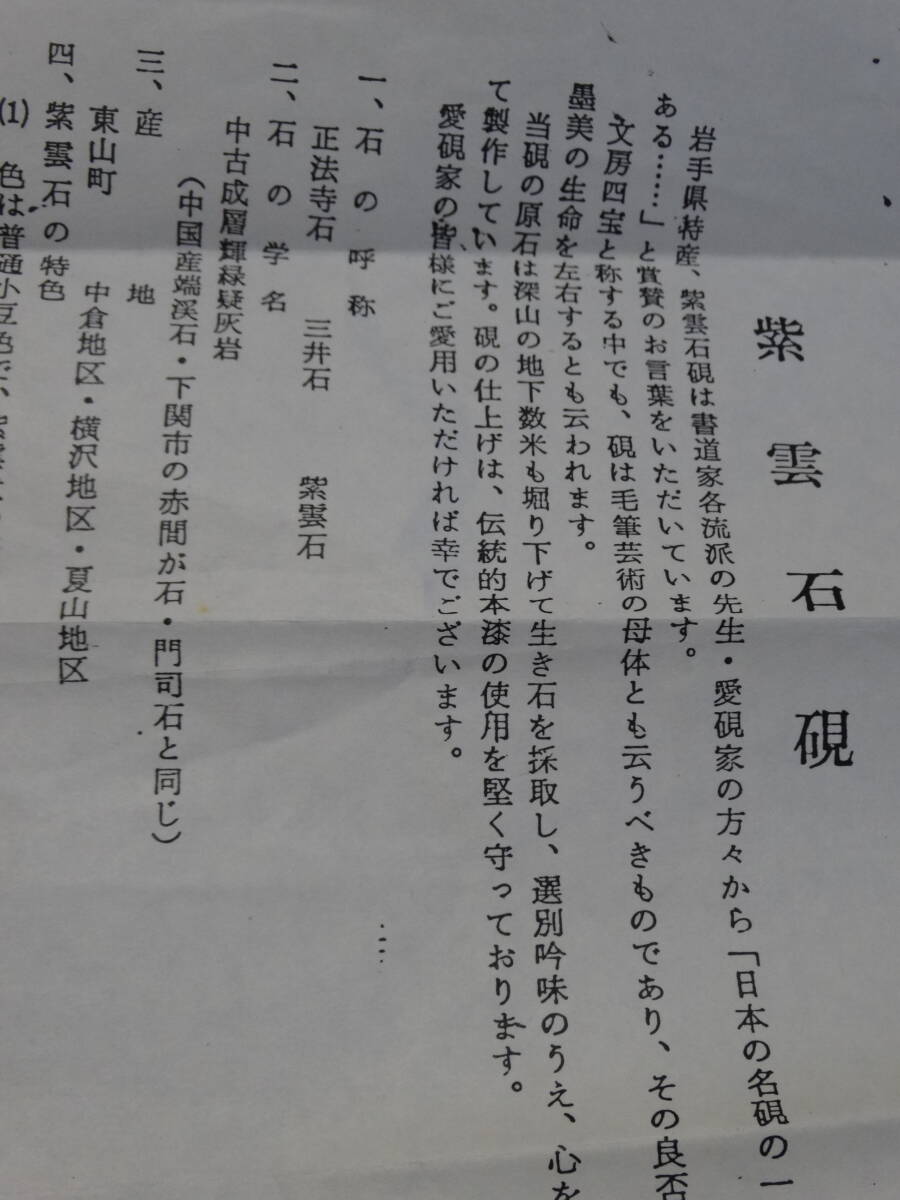 紫雲石硯
岩手県特産、紫雲石硯は書道家各流派の先生・愛硯家の方々から「日本の名硯の一
ある……」と賞賛のお言葉をいただいています。
文房四宝と称する中でも、硯は毛筆芸術の母体とも云うべきものであり、その良否
墨美の生命を左右するとも云われます。
当硯の原石は深山の地下数米も堀り下げて生き石を採取し、選別吟味のうえ、心を
て製作しています。硯の仕上げは、伝統的本漆の使用を堅く守っております。
愛硯家の皆、様にご愛用いただければ幸でございます。
一、石の呼称
正法寺石 三井石 紫雲石
二、石の学名
中古成層輝緑疑灰岩
（中国産端溪石・下関市の赤間が石・門司石と同じ）
三、産地
東山町 中倉地区・横沢地区・夏山地区
四、紫雲石の特色
(1) 色は普通小豆色で、